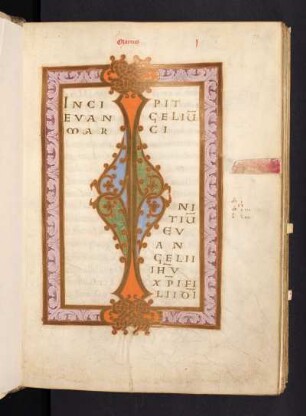 Marcus
INCI PIT
EVAN GELIŪ
MAR CI
I
NI
TIŪ
EV
AN
GELII
IHV
XPI FI
LII DI